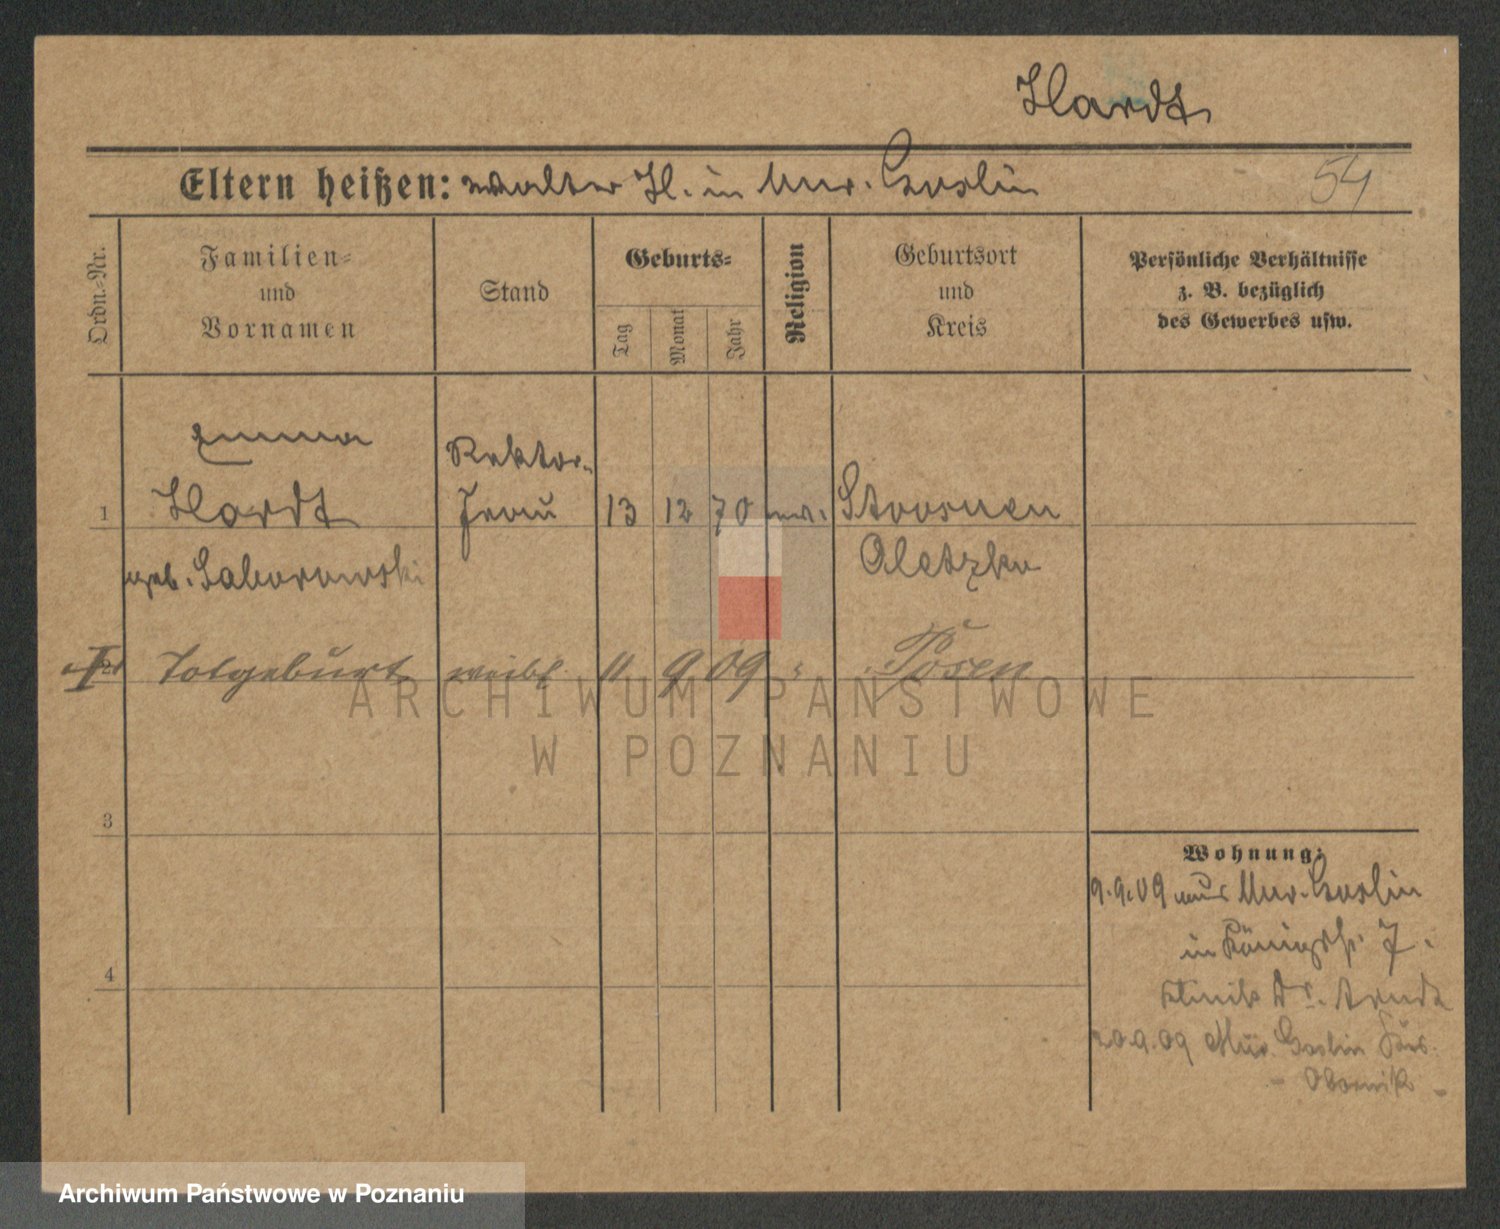 Hardt
Eltern heißen: Walter H. in Mur. Goslin
54
Ordn.-Nr.
Familien-
und
Vornamen
Stand
Geburts-
Tag
Monat
Jahr
Religion
Geburtsort
und
Kreis
Persönliche Verhältnisse
z. B. bezüglich
des Gewerbes usw.
Emma
Rektor-
1 Hardt Frau 13 12 70 ev. Stoosnen
geb. Saborowski Oletzko
2 Totgeburt weibl. 11 9 09 " Posen
ARCHIWUM PAŃSTWOWE
W POZNANIU
3
Wohnung:
9.9.09 aus Mur. Goslin
in Königstr. 7.
4
Klinik Dr.
20.9.09 Mur. Goslin Krs.
- Obornik -
Archiwum Państwowe w Poznaniu